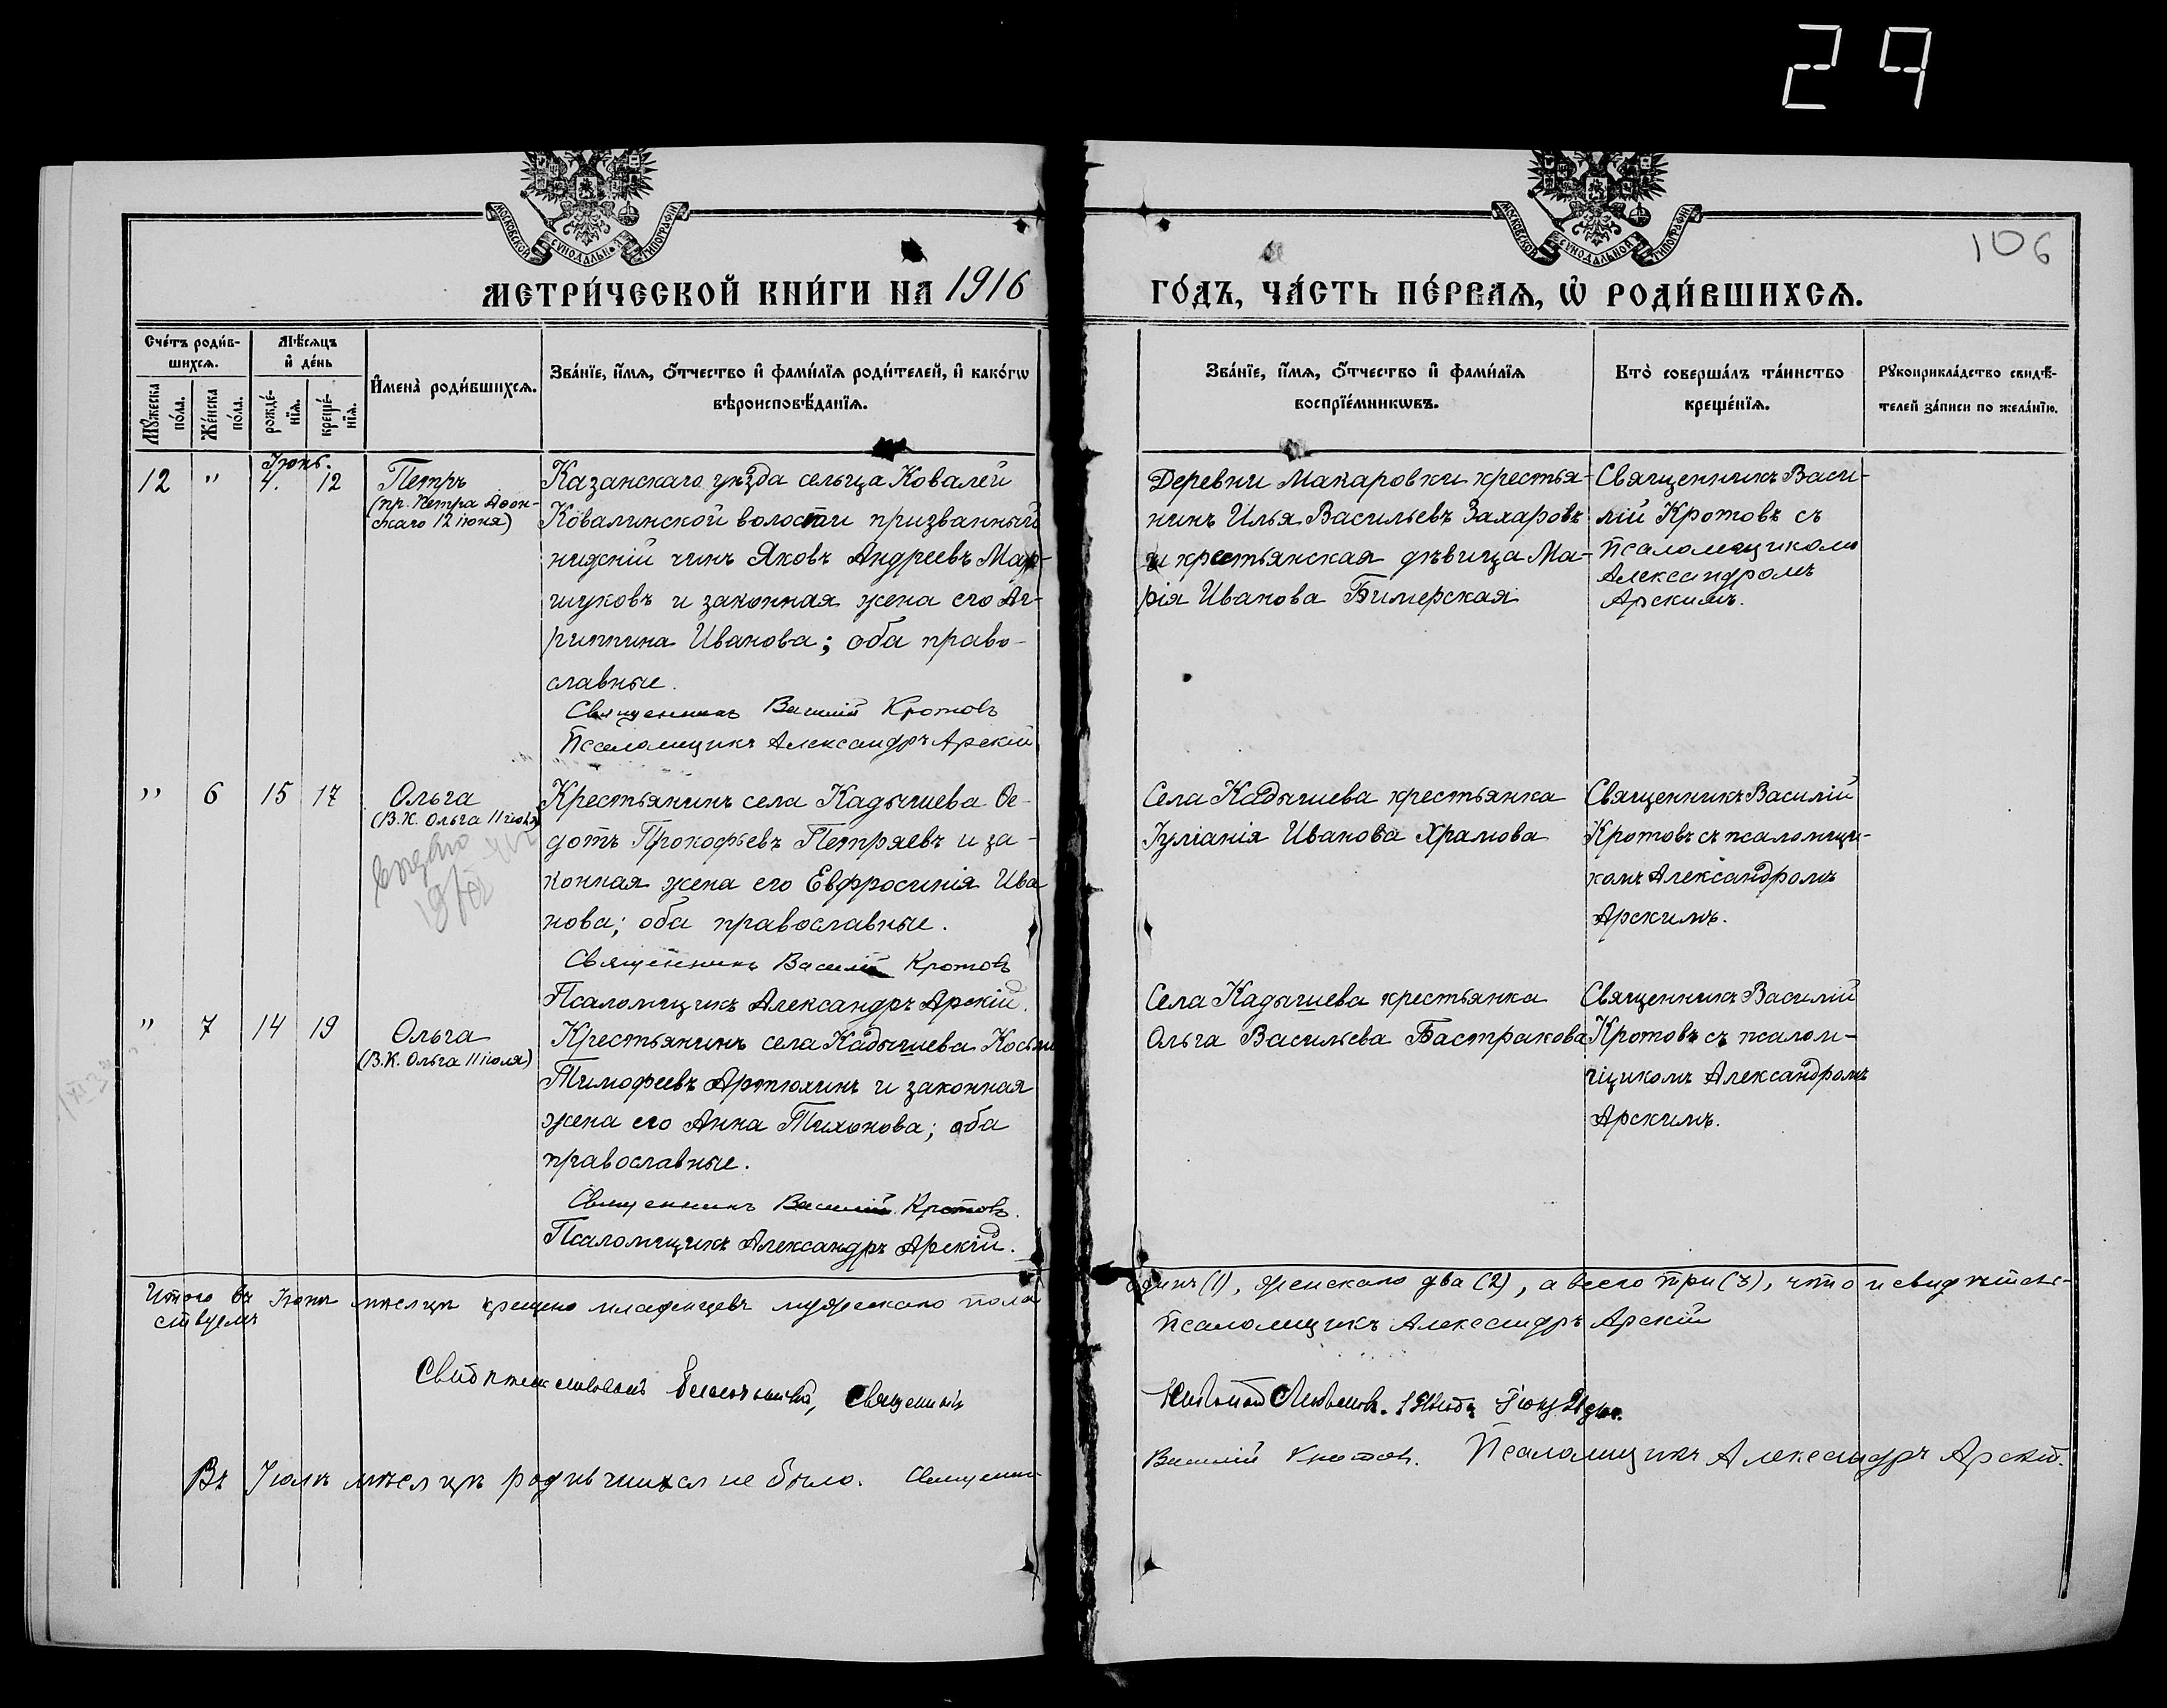 29
106
МОСКОВСКОЙ СѴНОДАЛЬНОЙ ТИПОГРАФІИ
МОСКОВСКОЙ СѴНОДАЛЬНОЙ ТИПОГРАФІИ
МЕТРИ́ЧЕСКОЙ КНИ́ГИ НА 1916
ГО́ДЪ, ЧА́СТЬ ПЕ́РВАѦ, Ѡ҆ РОДИ́ВШИХСѦ.
Сче́тъ роди́в-
шихсѧ.
Мѣ́сѧцъ
и҆ де́нь
Мꙋ́жеска
по́ла.
Же́нска
по́ла.
рожде́-
нїѧ.
креще́-
нїѧ.
И҆мена̀ роди́вшихсѧ.
Зва́нїе, и҆́мѧ, ѻ҆́тчество и҆ фами́лїѧ роди́телей, и҆ како́гѡ
вѣроисповѣ́данїѧ.
Зва́нїе, и҆́мѧ, ѻ҆́тчество и҆ фами́лїѧ
воспрїе́мникѡвъ.
Кто̀ соверша́лъ та́инство
креще́нїѧ.
Рꙋкоприкла́дство свидѣ́-
телей за́писи по жела́нїю.
Іюнь.
12 " 4. 12
Петръ
(пр. Петра Аѳон-
скаго 12 іюня)
Казанскаго уѣзда сельца Ковалей
Ковалинской волости призванный
нижній чинъ Яковъ Андреевъ Мар-
шуковъ и законная жена его Аг-
риппина Иванова; оба право-
славные.
Священникъ Василій Кротовъ
Псаломщикъ Александръ Арскій
Деревни Макаровки крестья-
нинъ Илья Васильевъ Захаровъ
и крестьянская дѣвица Ма-
рія Иванова Бимерская
Священникъ Васи-
лій Кротовъ съ
псаломщикомъ
Александромъ
Арскимъ.
" 6 15 17
Ольга
(В.К. Ольга 11 іюля)
Крестьянинъ села Кадышева Ѳе-
дотъ Прокофьевъ Петряевъ и за-
конная жена его Евфросинія Ива
нова; оба православные.
Священникъ Василій Кротовъ
Псаломщикъ Александръ Арскій.
Села Кадышева крестьянка
Іуліанія Иванова Храмова
Священникъ Василій
Кротовъ съ псаломщи-
комъ Александромъ
Арскимъ.
" 7 14 19
Ольга
(В.К. Ольга 11 іюля)
Крестьянинъ села Кадышева Косьма
Тимофеевъ Артюхинъ и законная
жена его Анна Тихонова; оба
православные.
Священникъ Василій Кротовъ.
Псаломщикъ Александръ Арскій.
Села Кадышева крестьянка
Ольга Васильева Бастракова
Священникъ Василій
Кротовъ съ псалом-
щикомъ Александромъ
Арскимъ.
Итого въ Іюнѣ мѣсяцѣ крещено младенцевъ мужескаго пола
одинъ (1), женскаго два (2), а всего три (3), что и свидѣтель-
ствуемъ
Псаломщикъ Александръ Арскій
Священникъ
Въ Іюлѣ мѣсяцѣ родившихся не было. Священникъ
Василій Кротовъ. Псаломщикъ Александръ Арскій.